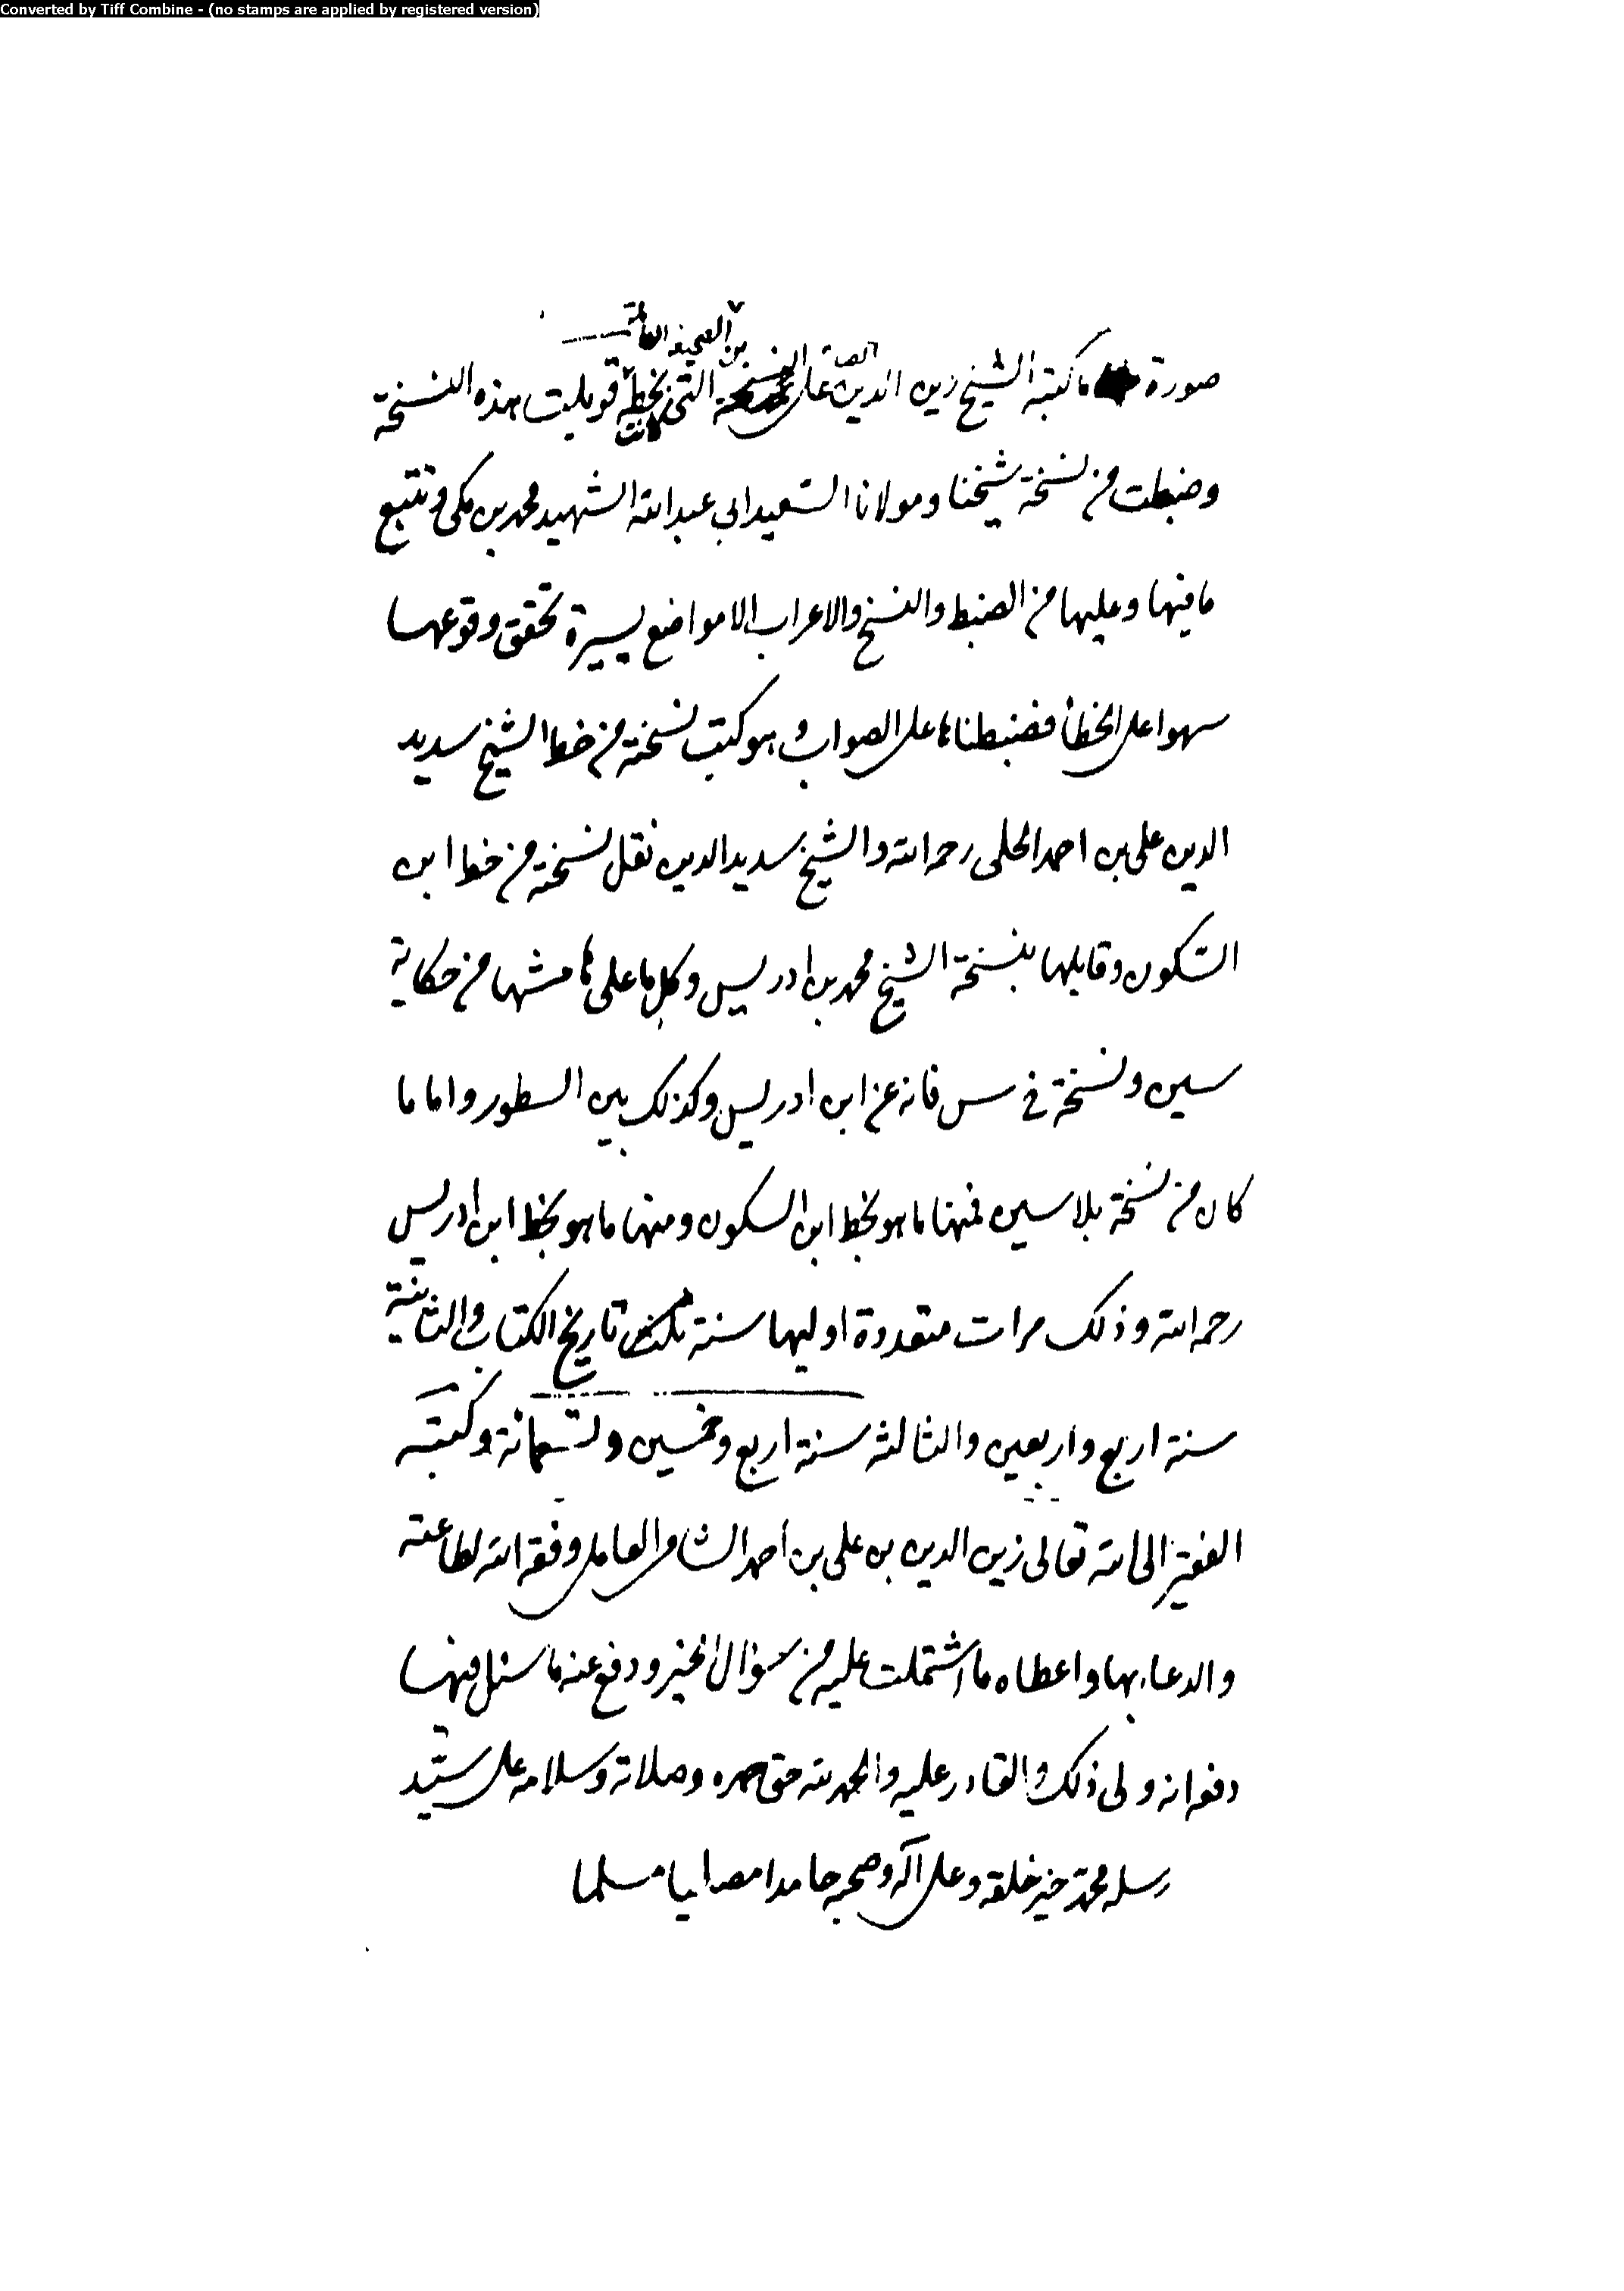 Converted by Tiff Combine - (no stamps are applied by registered version)
من الصحيفة الكاملة
صورة ما كتبه الشيخ زين الدين على النسخة التى كانت بخطه قوبلت هذه النسخة
وضبطت من نسخة شيخنا ومولانا السعيد ابى عبد الله الشهيد محمد بن مكى وتتبع
ما فيها وعليها من الضبط والنسخ والاعراب الا مواضع يسيرة تحقق وقوعها
سهوا على الخطأ فضبطناها على الصواب وهو كتب نسخته من خط الشيخ سديد
الدين على بن احمد الحلى رحمه الله والشيخ سديد الدين نقل نسخته من خط ابن
السكون وقابلها بنسخة الشيخ محمد بن ادريس وكل ما على هامشها من حكاية
سين ونسخة فى س فانه عن ابن ادريس وكذلك بين السطور واما ما
كان من نسخة بلا سين فمنها ما هو بخط ابن السكون ومنها ما هو بخط ابن ادريس
رحمه الله وذلك مرات متعددة اوليها سنة تاريخ الكتاب والثانية
سنة اربع واربعين والثالثه سنة اربع وخمسين وتسعمائة وكتبه
الفقير الى الله تعالى زين الدين بن على بن احمد الشامى العاملى وفقه الله لطاعته
والدعاء بها واعطاه ما اشتملت عليه من سؤال الخير ودفع عنه ما سئل فيها
دفعه انه ولى ذلك والقادر عليه والحمد لله حق حمده وصلاته وسلامه على سيد
رسله محمد خير خلقه وعلى آله وصحبه حامدا مصليا مسلما